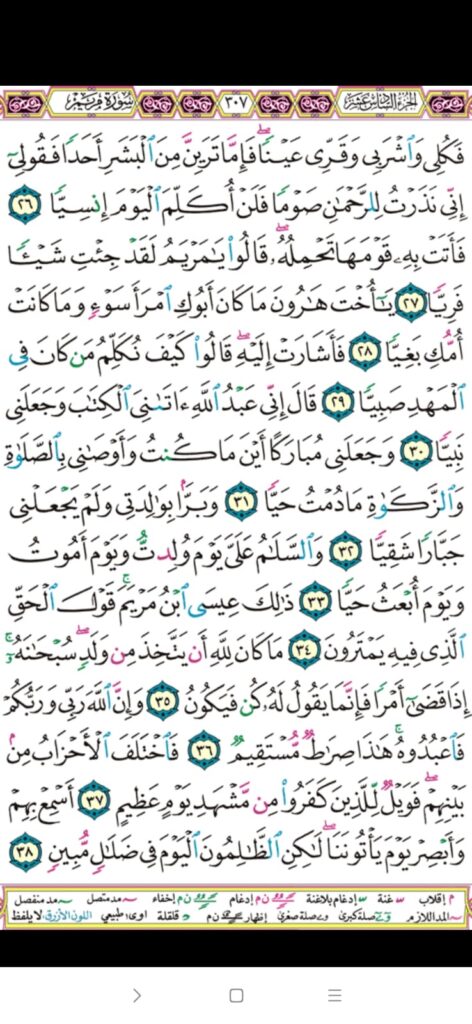 الجزء السادس عشر ٣٠٧ سورة مريم
فَكُلِي وَٱشْرَبِي وَقَرِّي عَيْنًاۖ فَإِمَّا تَرَيِنَّ مِنَ ٱلْبَشَرِ أَحَدًا فَقُولِيٓ
إِنِّي نَذَرْتُ لِلرَّحْمَٰنِ صَوْمًا فَلَنْ أُكَلِّمَ ٱلْيَوْمَ إِنسِيًّا ٢٦
فَأَتَتْ بِهِۦ قَوْمَهَا تَحْمِلُهُۥۖ قَالُوا۟ يَٰمَرْيَمُ لَقَدْ جِئْتِ شَيْـًٔا
فَرِيًّا ٢٧ يَٰٓأُخْتَ هَٰرُونَ مَا كَانَ أَبُوكِ ٱمْرَأَ سَوْءٍ وَمَا كَانَتْ
أُمُّكِ بَغِيًّا ٢٨ فَأَشَارَتْ إِلَيْهِۖ قَالُوا۟ كَيْفَ نُكَلِّمُ مَن كَانَ فِي
ٱلْمَهْدِ صَبِيًّا ٢٩ قَالَ إِنِّي عَبْدُ ٱللَّهِ ءَاتَىٰنِيَ ٱلْكِتَٰبَ وَجَعَلَنِي
نَبِيًّا ٣٠ وَجَعَلَنِي مُبَارَكًا أَيْنَ مَا كُنتُ وَأَوْصَٰنِي بِٱلصَّلَوٰةِ
وَٱلزَّكَوٰةِ مَا دُمْتُ حَيًّا ٣١ وَبَرًّۢا بِوَٰلِدَتِي وَلَمْ يَجْعَلْنِي
جَبَّارًا شَقِيًّا ٣٢ وَٱلسَّلَٰمُ عَلَيَّ يَوْمَ وُلِدتُّ وَيَوْمَ أَمُوتُ
وَيَوْمَ أُبْعَثُ حَيًّا ٣٣ ذَٰلِكَ عِيسَى ٱبْنُ مَرْيَمَۚ قَوْلَ ٱلْحَقِّ
ٱلَّذِي فِيهِ يَمْتَرُونَ ٣٤ مَا كَانَ لِلَّهِ أَن يَتَّخِذَ مِن وَلَدٍۖ سُبْحَٰنَهُۥٓۚ
إِذَا قَضَىٰٓ أَمْرًا فَإِنَّمَا يَقُولُ لَهُۥ كُن فَيَكُونُ ٣٥ وَإِنَّ ٱللَّهَ رَبِّي وَرَبُّكُمْ
فَٱعْبُدُوهُۚ هَٰذَا صِرَٰطٌ مُّسْتَقِيمٌ ٣٦ فَٱخْتَلَفَ ٱلْأَحْزَابُ مِنۢ
بَيْنِهِمْۖ فَوَيْلٌ لِّلَّذِينَ كَفَرُوا۟ مِن مَّشْهَدِ يَوْمٍ عَظِيمٍ ٣٧ أَسْمِعْ بِهِمْ
وَأَبْصِرْ يَوْمَ يَأْتُونَنَاۖ لَٰكِنِ ٱلظَّٰلِمُونَ ٱلْيَوْمَ فِي ضَلَٰلٍ مُّبِينٍ ٣٨
م إقلاب غنة إدغام بلاغنة ن م إدغام ن م إخفاء مد متصل مد منفصل
المد اللازم صلة كبرى صلة صغرى إظهار ن م قلقلة اوى: طبيعي اللون الأزرق: لا يلفظ